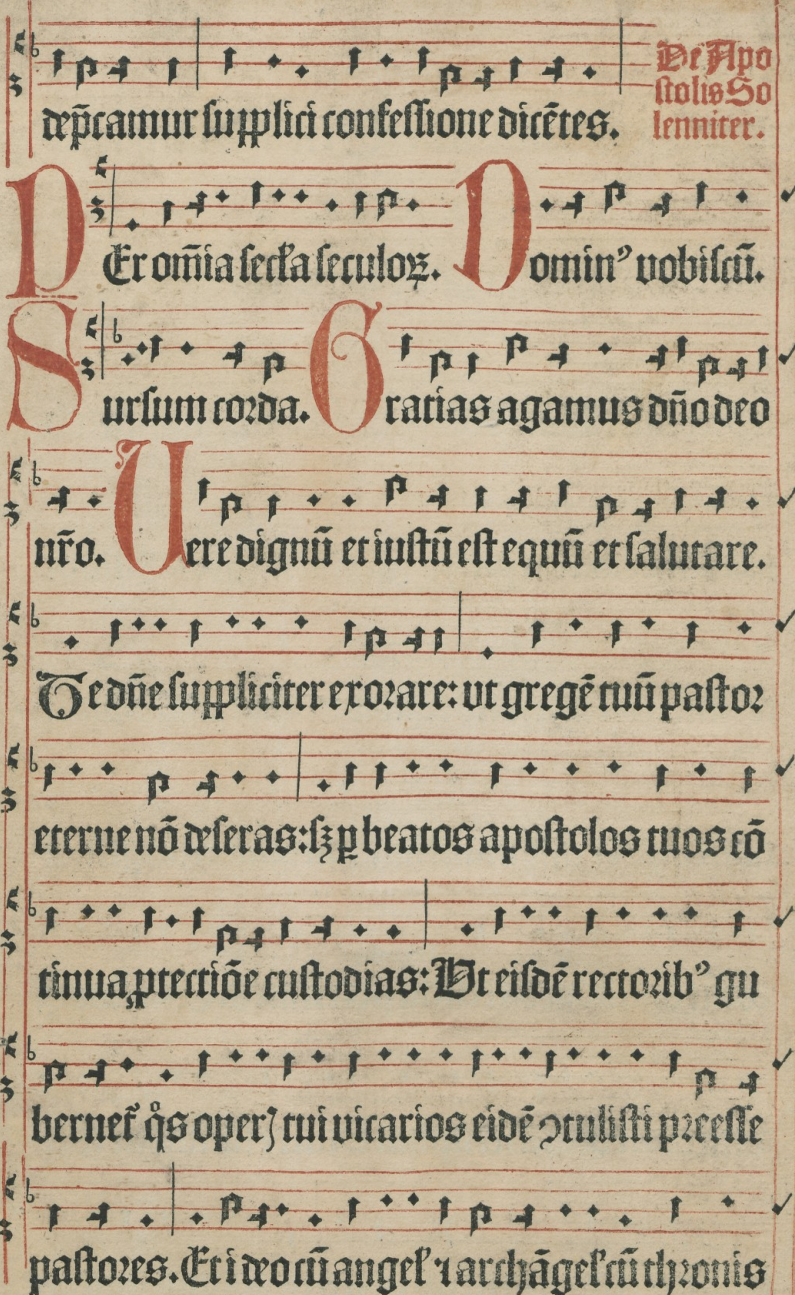 dep̄camur supplici confessione dicētes.
De Apo
stolis So
lenniter.
PEr om̄ia secła seculoꝝ. Dominꝰ vobiscū.
Sursum corda. Gratias agamus dn̄o deo
nr̄o. Uere dignū et iustū est equū et salutare.
Te dn̄e suppliciter exorare: vt gregē tuū pastor
eterne nō deseras: sꝫ ꝑ beatos apostolos tuos cō
tinua ꝓtectiōe custodias: Ut eisdē rectoribꝰ gu
bernet᷑ q̊s operꝭ tui vicarios eidē ꝯtulisti preesse
pastores. Et ideo cū angeł ⁊ archāgeł cū thronis